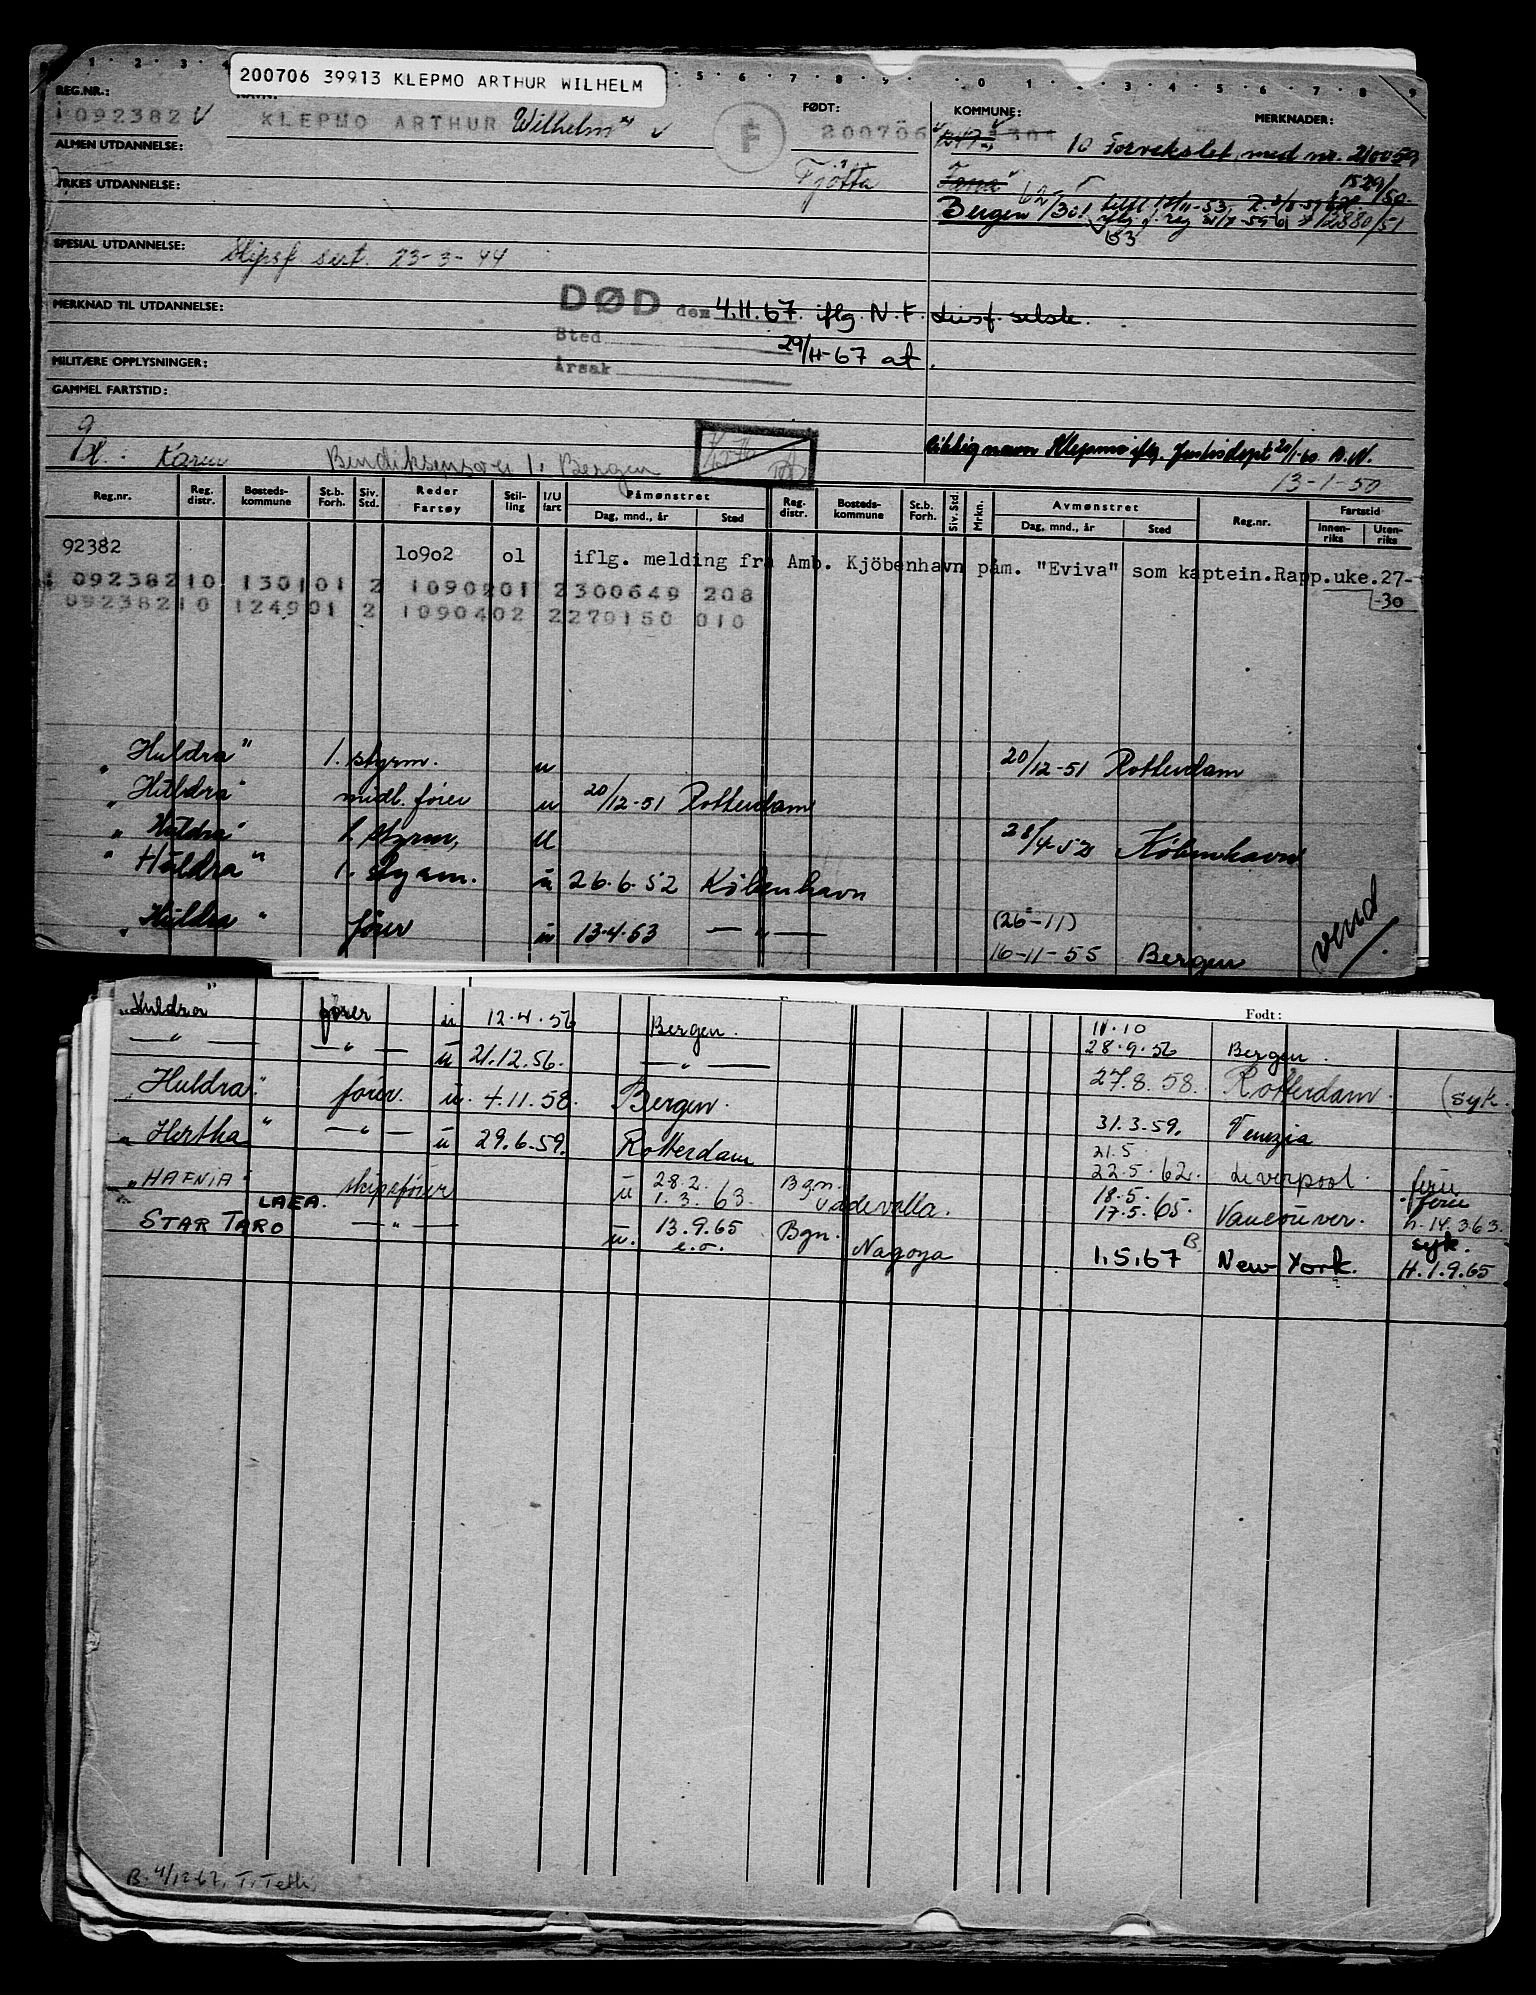 200706 39913 KLEPMO ARTHUR WILHELM
REG.NR.: FØDT: KOMMUNE: MERKNADER:
092382 KLEPMO ARTHUR Wilhelm F 200706 10 Forvekslet med nr. 210059
ALMEN UTDANNELSE:
Tjötta Fana 1529/50
YRKES UTDANNELSE:
Bergen 62/301 12880/51
53
SPESIAL UTDANNELSE:
Skipsf sert. 23-3-44
MERKNAD TIL UTDANNELSE:
DØD den 4.11.67. iflg. N.F.
Sted
29/11-67 at.
MILITÆRE OPPLYSNINGER:
Årsak
GAMMEL FARTSTID:
H.: Karen Bendiksens 1. Bergen
Riktig navn Klepmo iflg. Justisdept 20/1-60 A.N.
13-1-50
Reg.nr. Reg. distr. Bosteds-kommune St.b. Forh. Siv. Std. Reder Fartøy Stilling I/U fart Påmønstret Dag, mnd., år Sted Reg. distr. Bosteds-kommune St.b. Forh. Siv. Std. Mrkn. Avmønstret Dag, mnd., år Sted Reg.nr. Fartstid Innen-riks Uten-riks
92382 10902 01 iflg. melding fra Amb. Kjöbenhavn påm. "Eviva" som kaptein.Rapp.uke.27-
-30
09238210 130101 2 1090201 2300649 208
09238210 124901 2 1090402 2270150 010
"Huldra" 1. styrm. u 20/12-51 Rotterdam
"Huldra" midl. förer u 20/12-51 Rotterdam
"Huldra" 1. styrm, u 28/4-52 København
"Huldra" 1. styrm. u 26.6.52 København
(26-11)
"Huldra" förer u 13.4.53 — " — 16-11-55 Bergen
vend
Født:
"Huldra" fører u 12.4.56 Bergen. 11.10
28.9.56 Bergen.
— " — — " — u 21.12.56. — " — 27.8.58. Rotterdam. (syk.
"Huldra" fører. u. 4.11.58. Bergen. 31.3.59. Venezia
"Hertha" — " — u 29.6.59. Rotterdam 21.5
22.5.62. Liverpool. ferie
"HAFNIA" skipsfører u 28.2. Bgn.
1.3.63. Uddevalla. 18.5.
17.5.65. Vancouver. ferie
h.14.3.63.
LAEA.
STAR TARO — " — u. 13.9.65 Bgn. syk.
e.o. Nagoya 1.5.67 B. New York. H.1.9.65